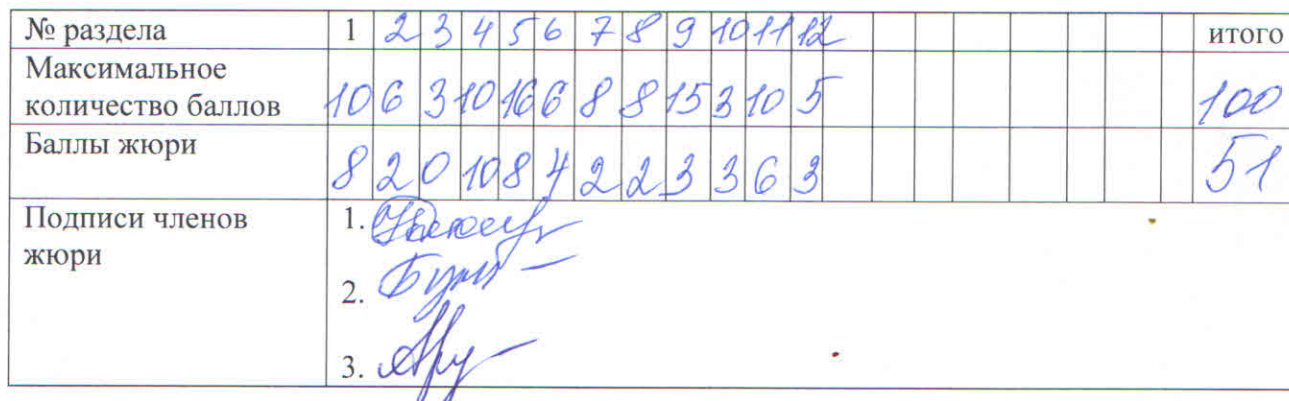 № раздела 1 2 3 4 5 6 7 8 9 10 11 12 итого
Максимальное
количество баллов 10 6 3 10 16 6 8 8 15 3 10 5 100
Баллы жюри 8 2 0 10 8 4 2 2 3 3 6 3 51
Подписи членов 1.
жюри
2.
3.